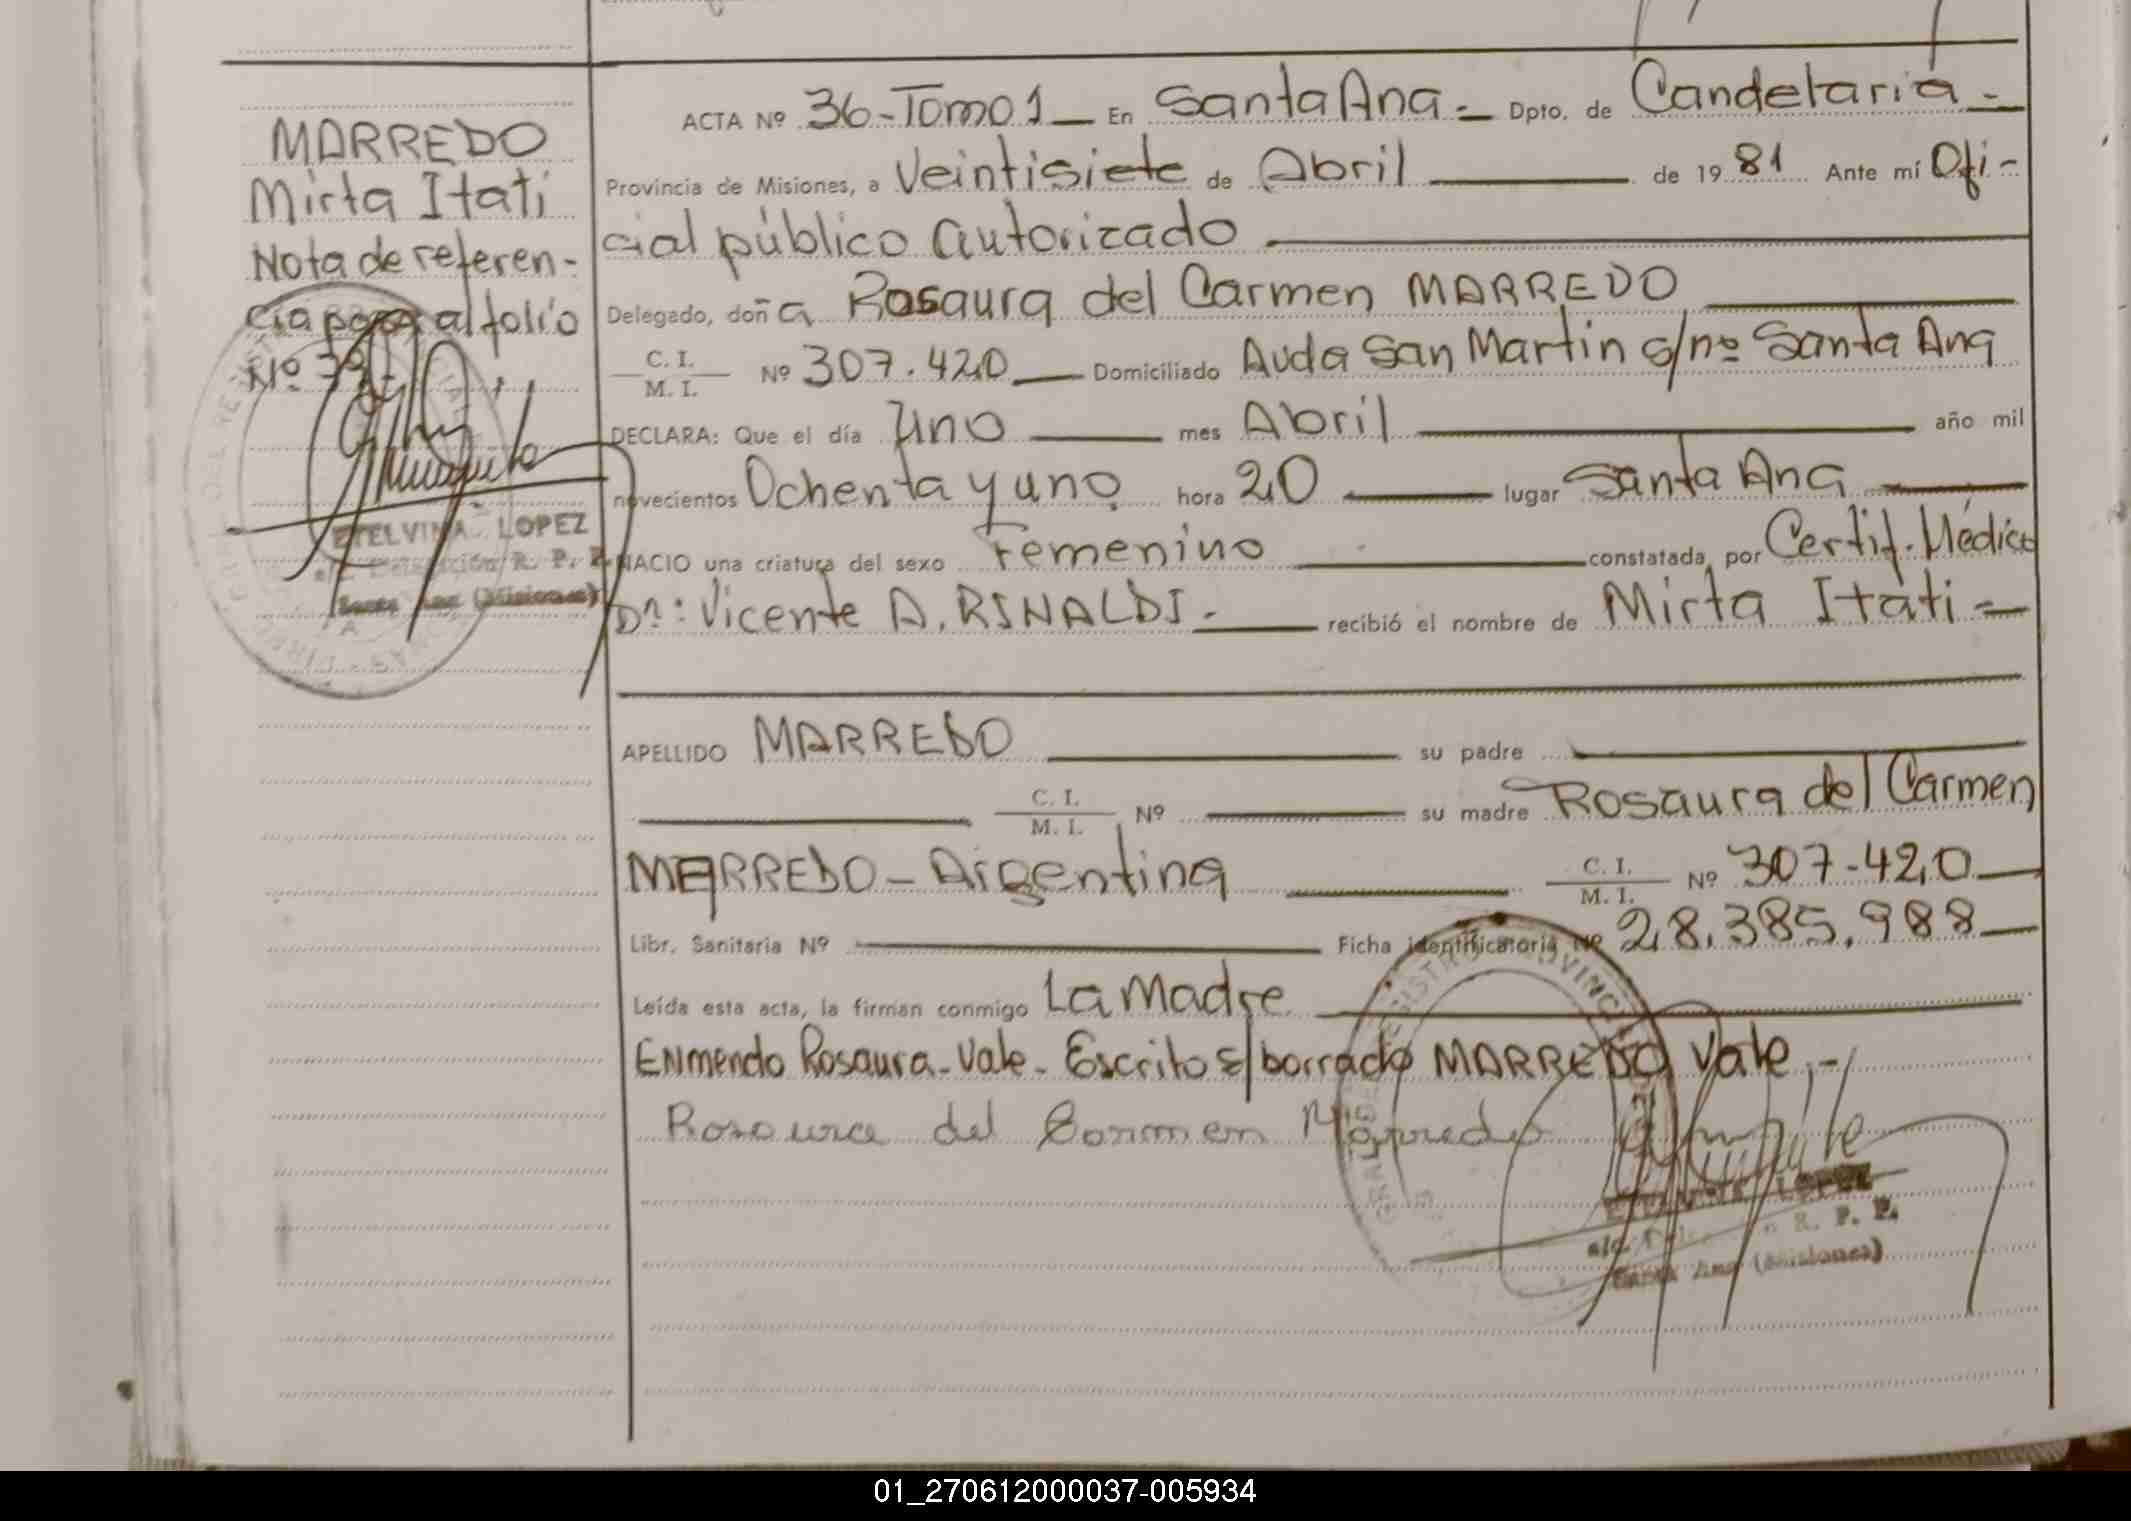 MARREDO
Mirta Itatí
Nota de referen-
cia pasa al folio
Nº
ETELVINA LOPEZ
a/c. Delegación R. P. P.
Santa Ana (Misiones)
ACTA Nº 36-Tomo 1 En Santa Ana.= Dpto. de Candelaria.-
Provincia de Misiones, a Veintisiete de Abril de 1981 Ante mí Ofi-
cial público autorizado
Delegado, doña Rosaura del Carmen MARREDO
C. I. / M. I. Nº 307.420 Domiciliado Avda San Martín s/nº Santa Ana
DECLARA: Que el día Uno mes Abril año mil
novecientos Ochenta y uno hora 20 lugar Santa Ana
NACIO una criatura del sexo Femenino constatada por Certif. Médico
Dr: Vicente A. RINALDI.- recibió el nombre de Mirta Itatí=
APELLIDO MARREDO su padre
C. I. / M. I. Nº su madre Rosaura del Carmen
MARREDO - Argentina C. I. / M. I. Nº 307-420
Libr. Sanitaria Nº Ficha identificatoria Nº 28.385.988
Leída esta acta, la firman conmigo La Madre
ENmendo Rosaura-Vale-Escrito s/borrado MARREDO Vale,-
Rosaura del Carmen Marredo
ETELVINA LOPEZ
a/c. R. P. P.
Santa Ana (Misiones)
01_270612000037-005934